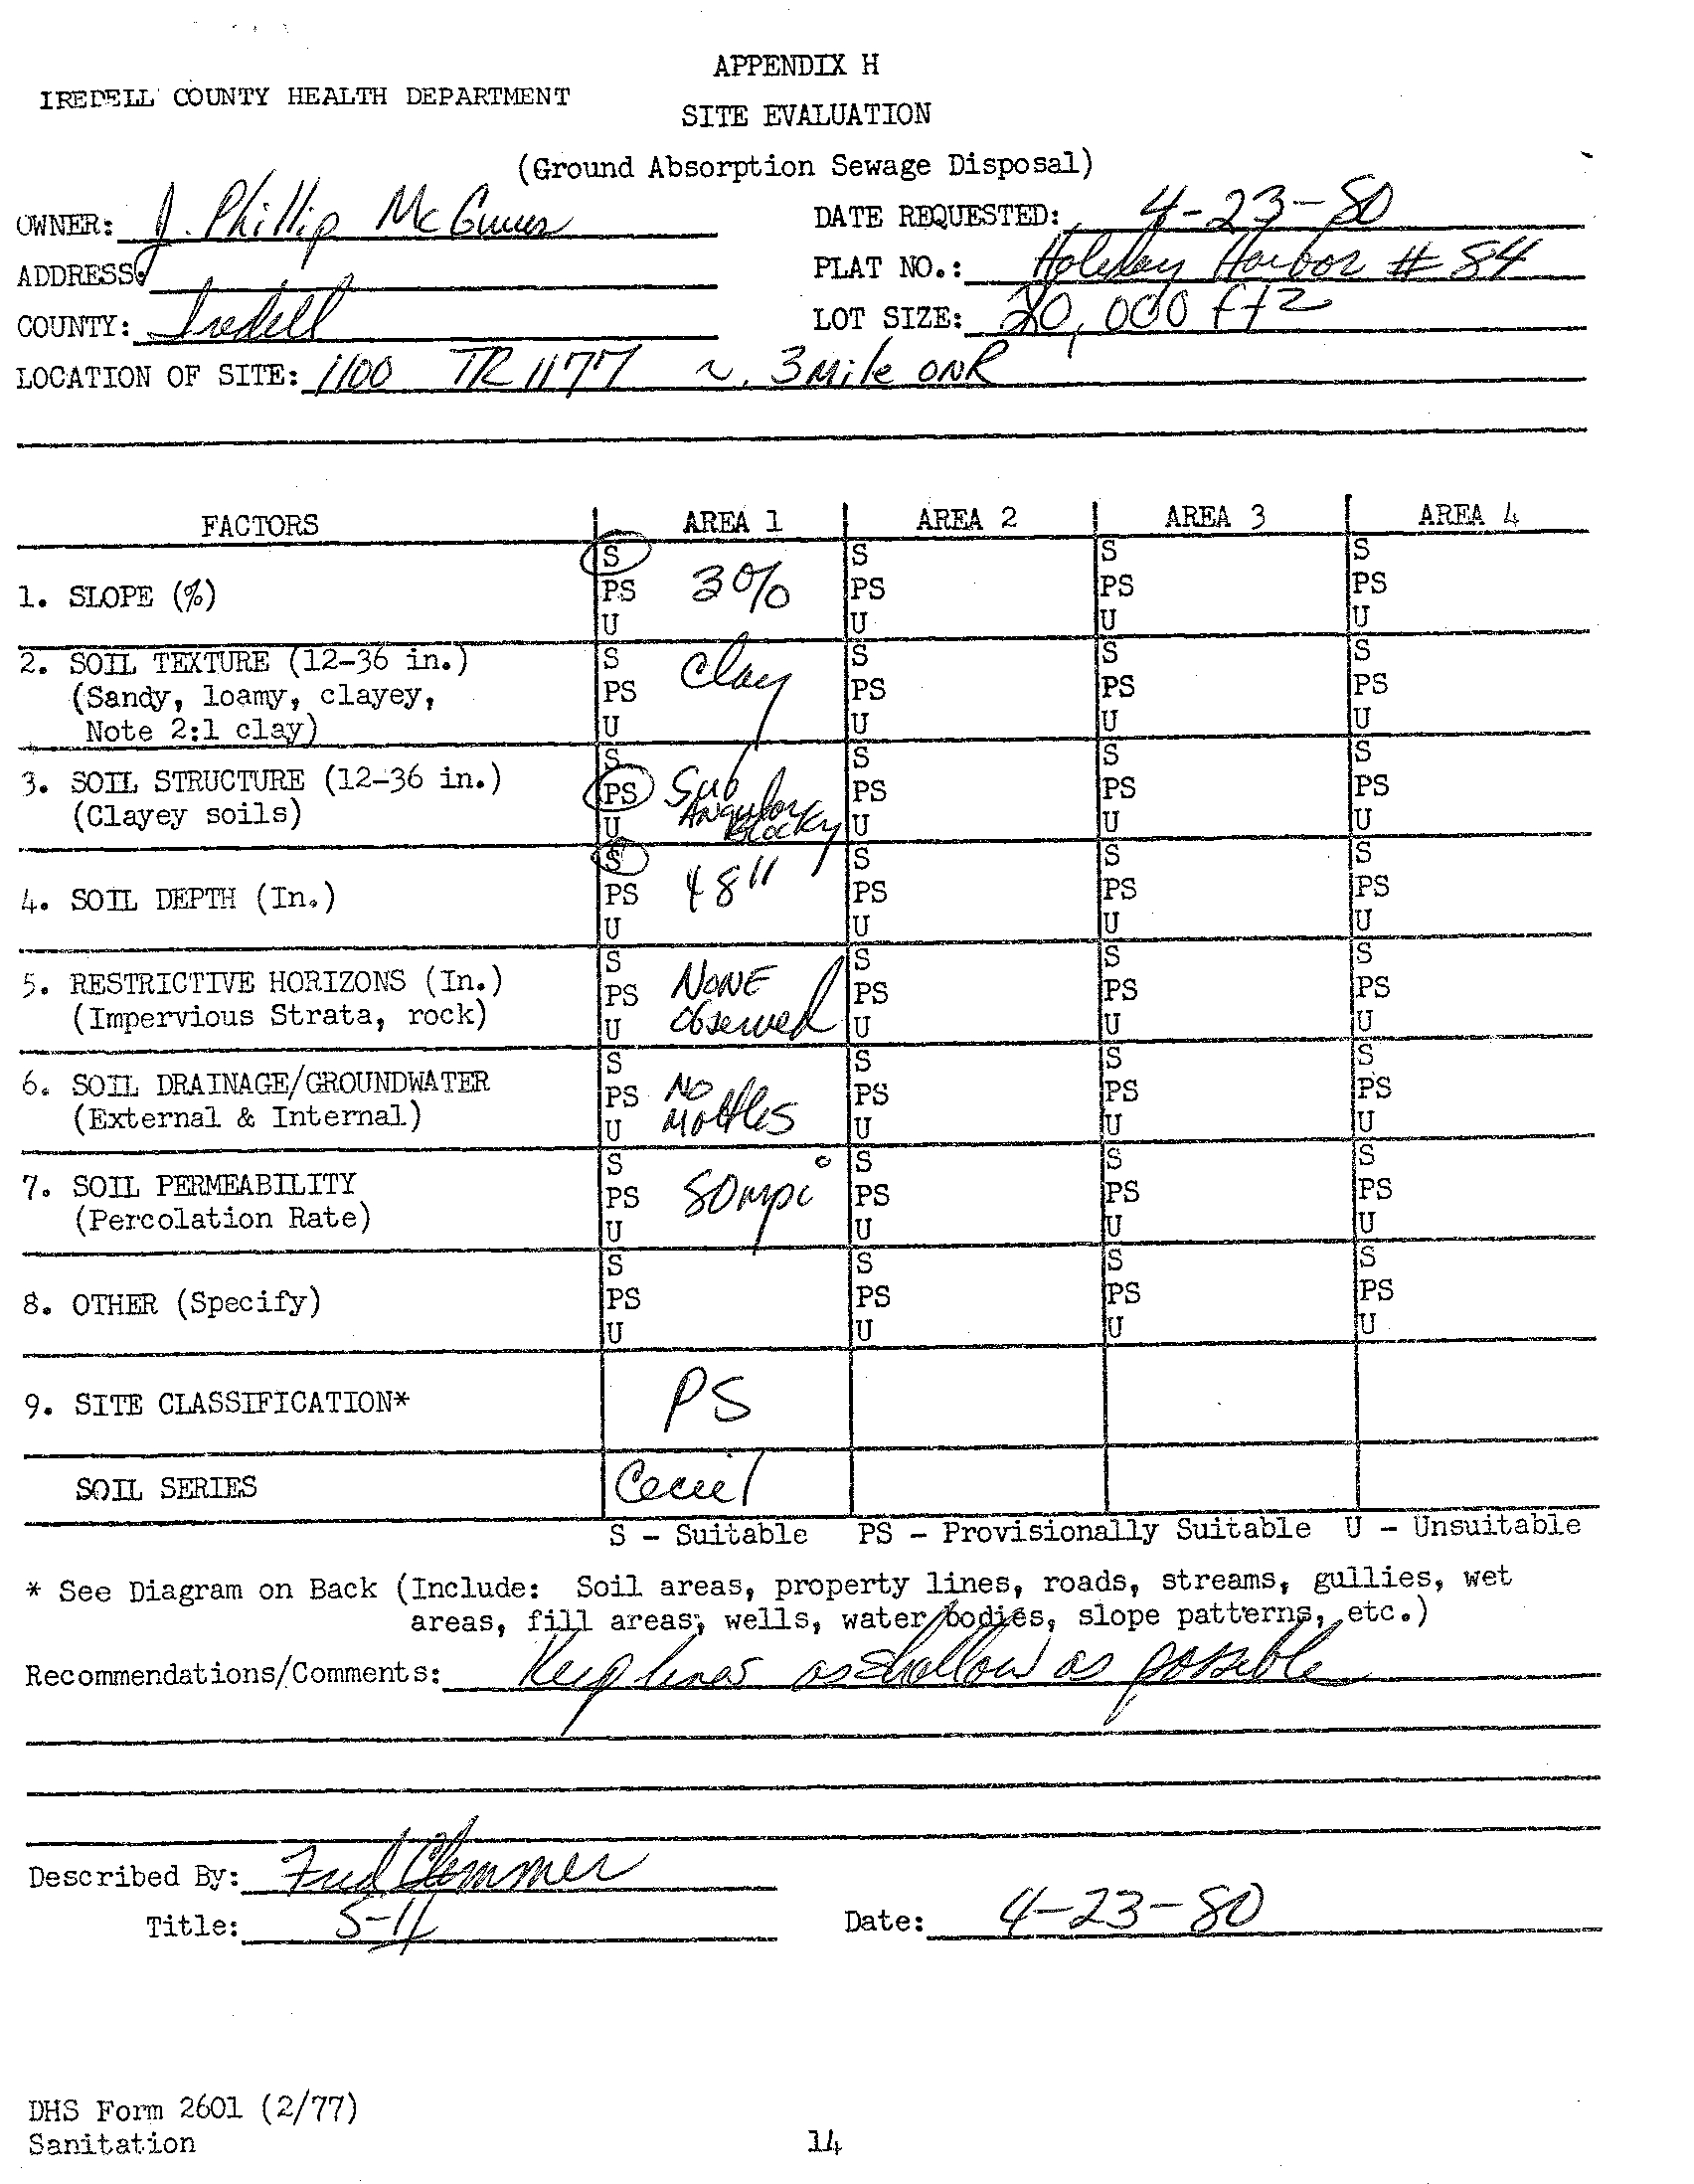 APPENDIX H
IREDELL COUNTY HEALTH DEPARTMENT
SITE EVALUATION
(Ground Absorption Sewage Disposal)
OWNER: J. Phillip DATE REQUESTED: 4-23-80
ADDRESS: PLAT NO.: Holiday Harbor # 84
COUNTY: Iredell LOT SIZE: 20,000 ft2
LOCATION OF SITE: 1100 TR 1177 ~ .3 Mile ON R
FACTORS AREA 1 AREA 2 AREA 3 AREA 4
S S S S
1. SLOPE (%) PS 3% PS PS PS
U U U U
2. SOIL TEXTURE (12-36 in.) S Clay S S S
(Sandy, loamy, clayey, PS PS PS PS
Note 2:1 clay) U U U U
S S S S
3. SOIL STRUCTURE (12-36 in.) PS Sub PS PS PS
(Clayey soils) U Angular Blocky U U U
S S S S
4. SOIL DEPTH (In.) PS 48" PS PS PS
U U U U
S S S S
5. RESTRICTIVE HORIZONS (In.) PS NONE PS PS PS
(Impervious Strata, rock) U observed U U U
S S S S
6. SOIL DRAINAGE/GROUNDWATER PS NO PS PS PS
(External & Internal) U Mottles U U U
S S S S
7. SOIL PERMEABILITY PS 80 mpi PS PS PS
(Percolation Rate) U U U U
S S S S
8. OTHER (Specify) PS PS PS PS
U U U U
9. SITE CLASSIFICATION* PS
SOIL SERIES Cecil
S - Suitable PS - Provisionally Suitable U - Unsuitable
* See Diagram on Back (Include: Soil areas, property lines, roads, streams, gullies, wet
areas, fill areas, wells, water bodies, slope patterns, etc.)
Recommendations/Comments: Keep lines as shallow as possible
Described By: Fred Clemmer
Title: Date: 4-23-80
DHS Form 2601 (2/77)
Sanitation 14